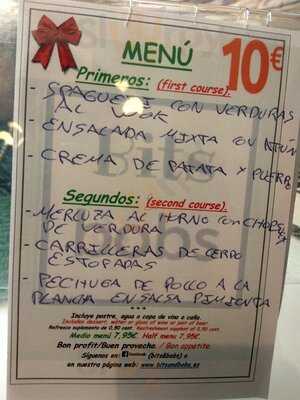 MENÚ
10€
Primeros: (first course).
- SPAGUETI CON VERDURAS
AL WOOK
- ENSALADA MIXTA CON ATUN
- CREMA DE PATATA Y PUERRO
Segundos: (second course).
- MERLUZA AL HORNO CON
DE VERDURA
- CARRILLERAS DE CERDO
ESTOFADAS
- PECHUGA DE POLLO A LA
PLANCHA EN SALSA PIMIENTA
Incluye postre, agua o copa de vino o caña.
Includes dessert, water or glass of wine or pint of beer.
Refresco suplemento de 0,90 cent.
Medio menú 7,95€. Half menu 7,95€.
Bon profit/Buen provecho. / Bon appetite.
Síguenos en: facebook (bits&bobs) o
en nuestra página web: www.bitsandbobs.es